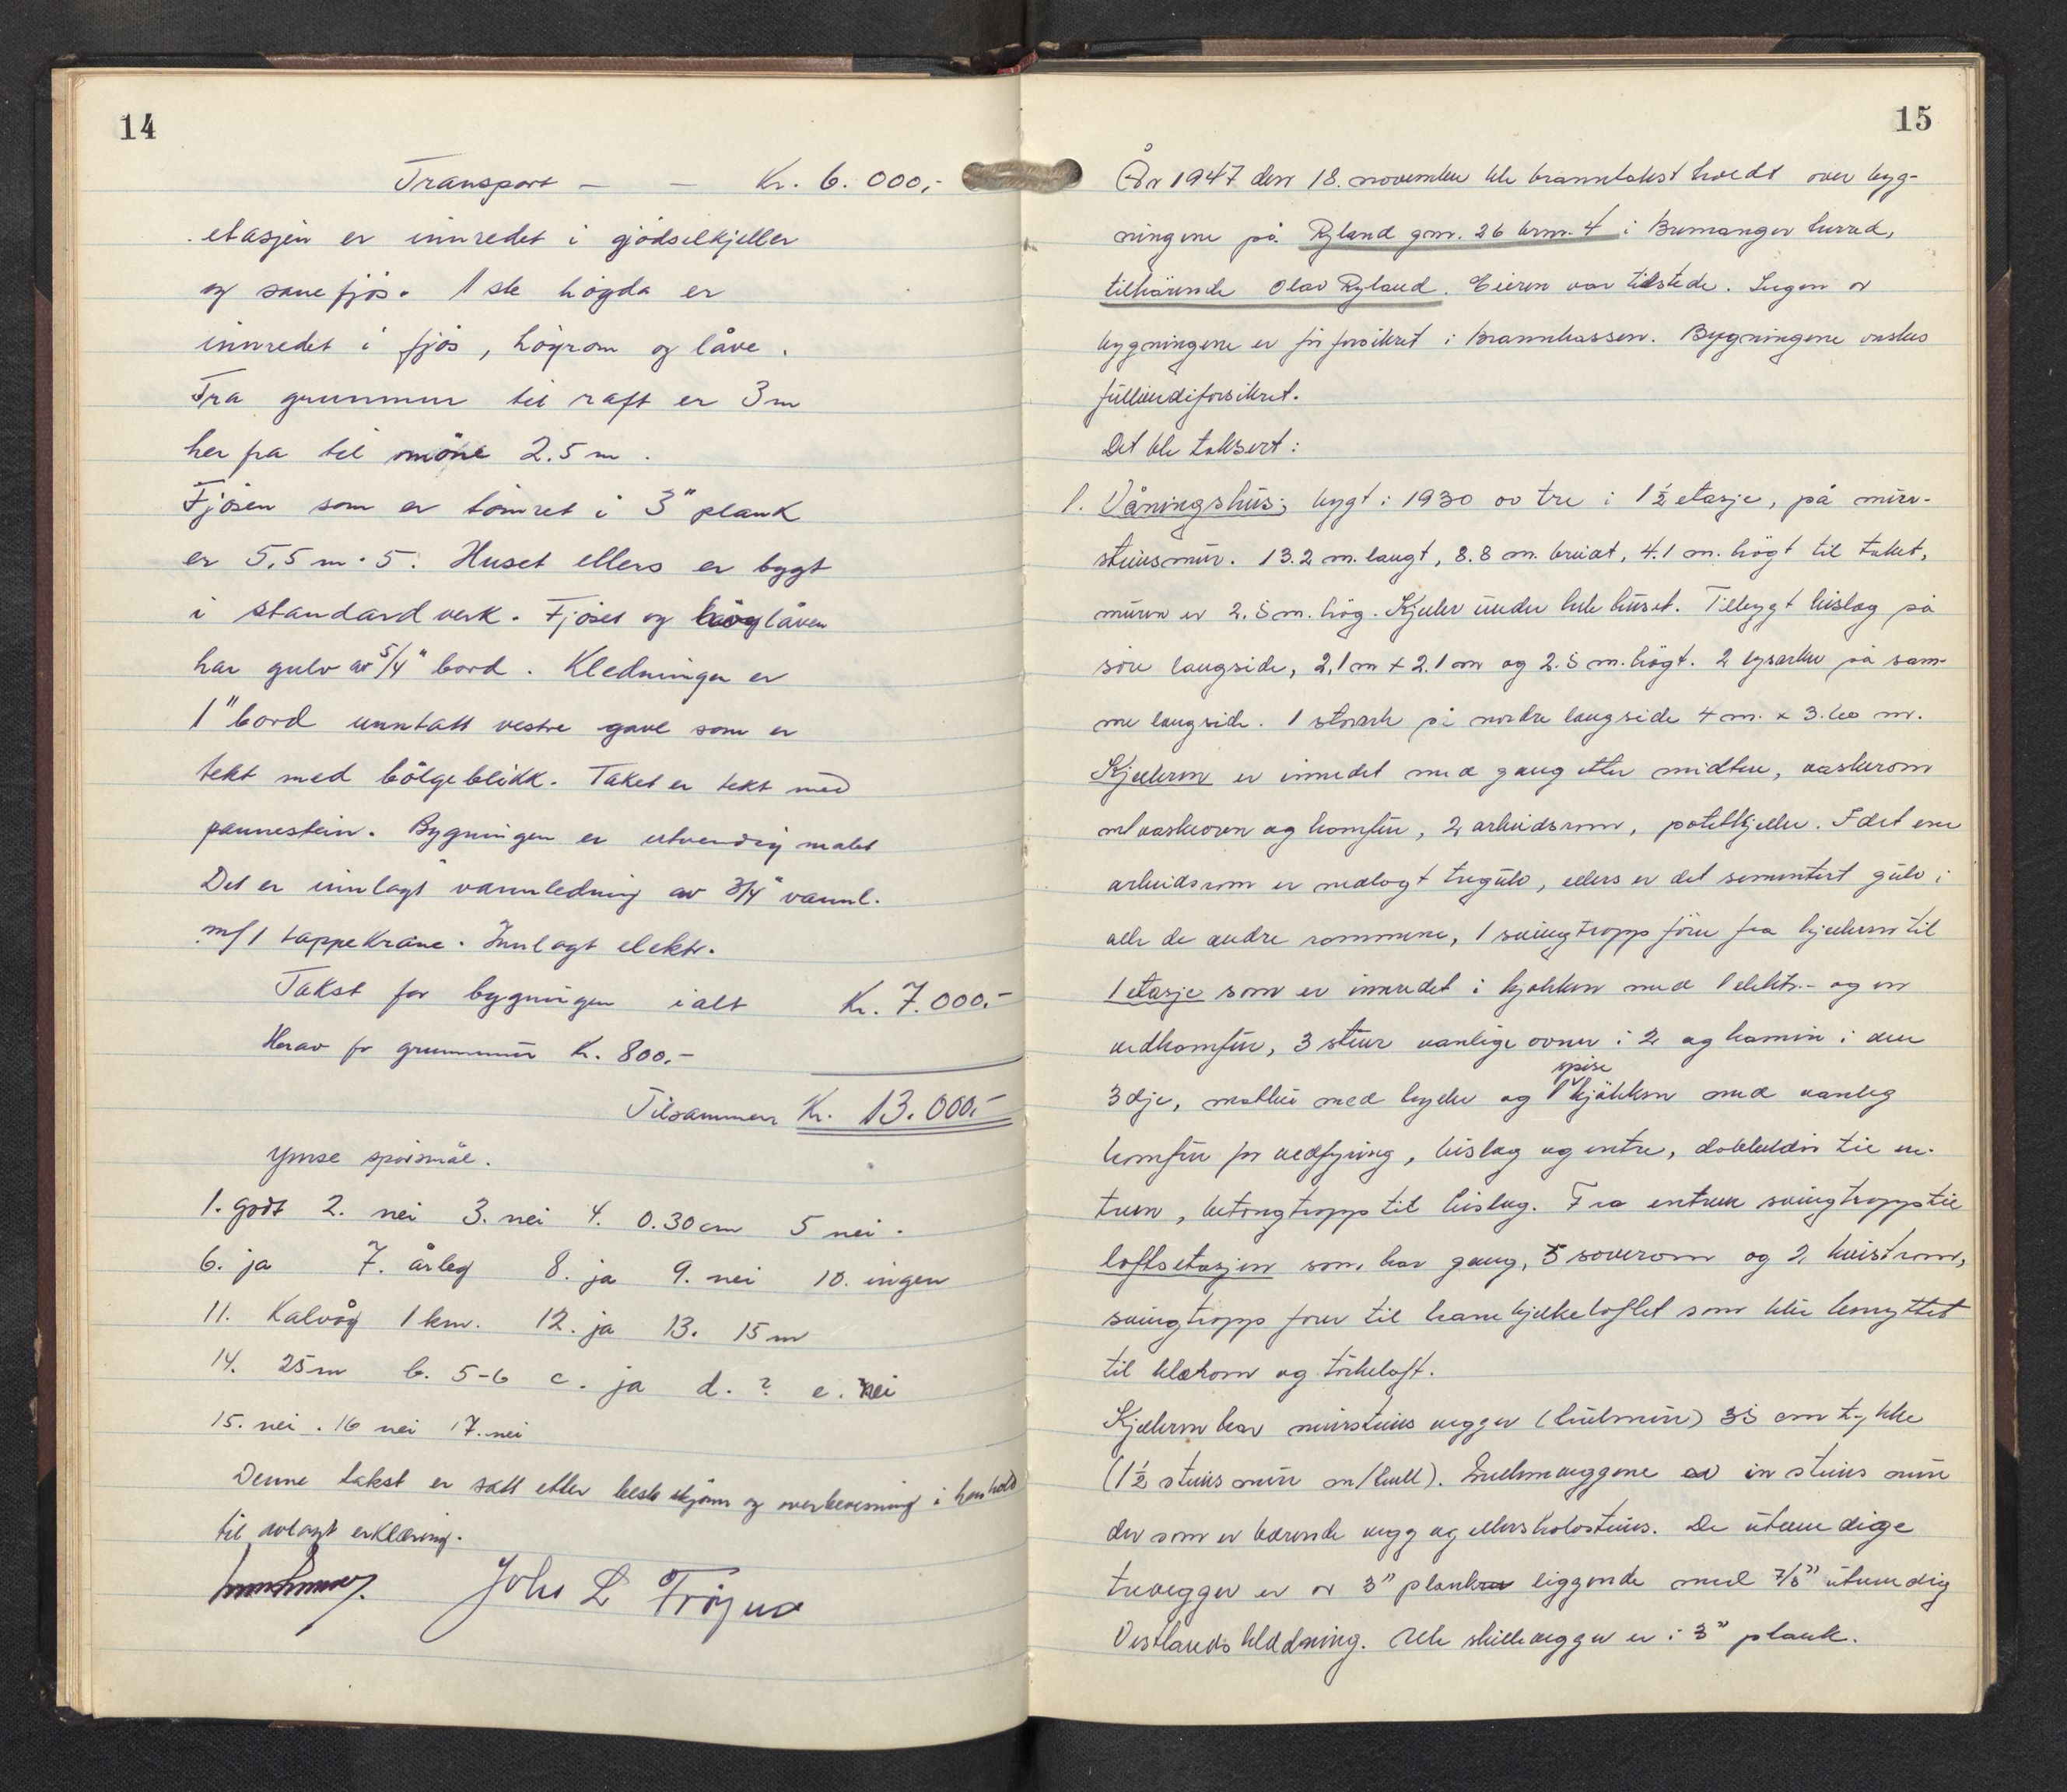 14
Transport — — Kr. 6.000,-
etasjen er innredet i gjödselkjeller
og sauefjös. 1ste högda er
innredet i fjös, höyrom og låve.
Fra grunnmur til raft er 3 m
her fra til möne 2.5 m.
Fjösen som er tömret i 3" plank
er 5,5 m · 5. Huset ellers er bygt
i standard verk. Fjöset og höylåven
har gulv av 5/4" bord. Kledningen er
1" bord unntatt vestre gavl som er
tekt med bölgeblikk. Taket er tekt med
pannestein. Bygningen er utvendig malet
Det er innlagt vannledning av 3/4" vannl.
m/1 tappekrane. Innlagt elektr.
Takst for bygningen ialt Kr. 7.000.-
Herav for grunnmur Kr. 800.-
Tilsammen Kr. 13.000.-
Ymse spörsmål.
1. godt 2. nei 3. nei 4. 0.30 cm 5 nei.
6. ja 7. årleg 8. ja 9. nei 10. ingen
11. Kalvåg 1 km. 12. ja 13. 15 m
14. 25 m b. 5-6 c. ja d. ? e. nei
15. nei. 16 nei 17. nei
Denne takst er satt etter beste skjönn og overbevisning i henhold
til avlagt erklæring.
Johs L Fröyen
15
År 1947 den 18. november ble branntakst holdt over byg-
ningene på Ryland gnr. 26 brnr. 4 i Bremanger herred,
tilhörende Olav Ryland. Eieren var tilstede. Ingen av
bygningene er för forsikret i Brannkassen. Bygningene önskes
fullverdiforsikret.
Det ble taksert:
1. Våningshus; bygt i 1930 av tre i 1½ etasje, på mur-
steinsmur. 13.2 m. langt, 8.8 m. breidt, 4.1 m. högt til taket,
muren er 2.5 m. hög. Kjeller under hele huset. Tilbygt bislag på
söre langside, 2,1 m x 2.1 m og 2.5 m. högt. 2 lysarker på sam-
me langside. 1 stor ark på nordre langside 4 m. x 3.60 m.
Kjelleren er innredet med gang etter midten, vaskerom
m/vaskeovn og komfur, 2 arbeidsrom, potetkjeller. I det ene
arbeidsrom er nedlagt tregulv, ellers er det sementert gulv i
alle de andre rommene, 1 svingtropp förer fra kjelleren til
1 etasje som er innredet i kjökken med 1 elektr.- og en
vedkomfur, 3 stuer vanlige ovner i 2 og kamin i den
3dje, matbu med hyller og 1 spise kjökken med vanleg
komfur for vedfyring, bislag og entre, dobbeldör til en-
treen, betongtropp til bislag. Fra entreen svingtropp til
loftsetasjen som har gang, 5 soverom og 2 kvistrom,
svingtropp förer til hanebjelkeloftet som blir benyttet
til klærom og törkeloft.
Kjelleren har mursteins vegger (hulmur) 35 cm tykke
(1½ steins mur m/hull). Mellemveggene av en steins mur
der som er bærende vegg og ellers halvsteins. De utvendige
trevegger er av 3" plank liggende med 7/8" utvendig
Vestlandsklædning. Alle skillevegger er i 3" plank.